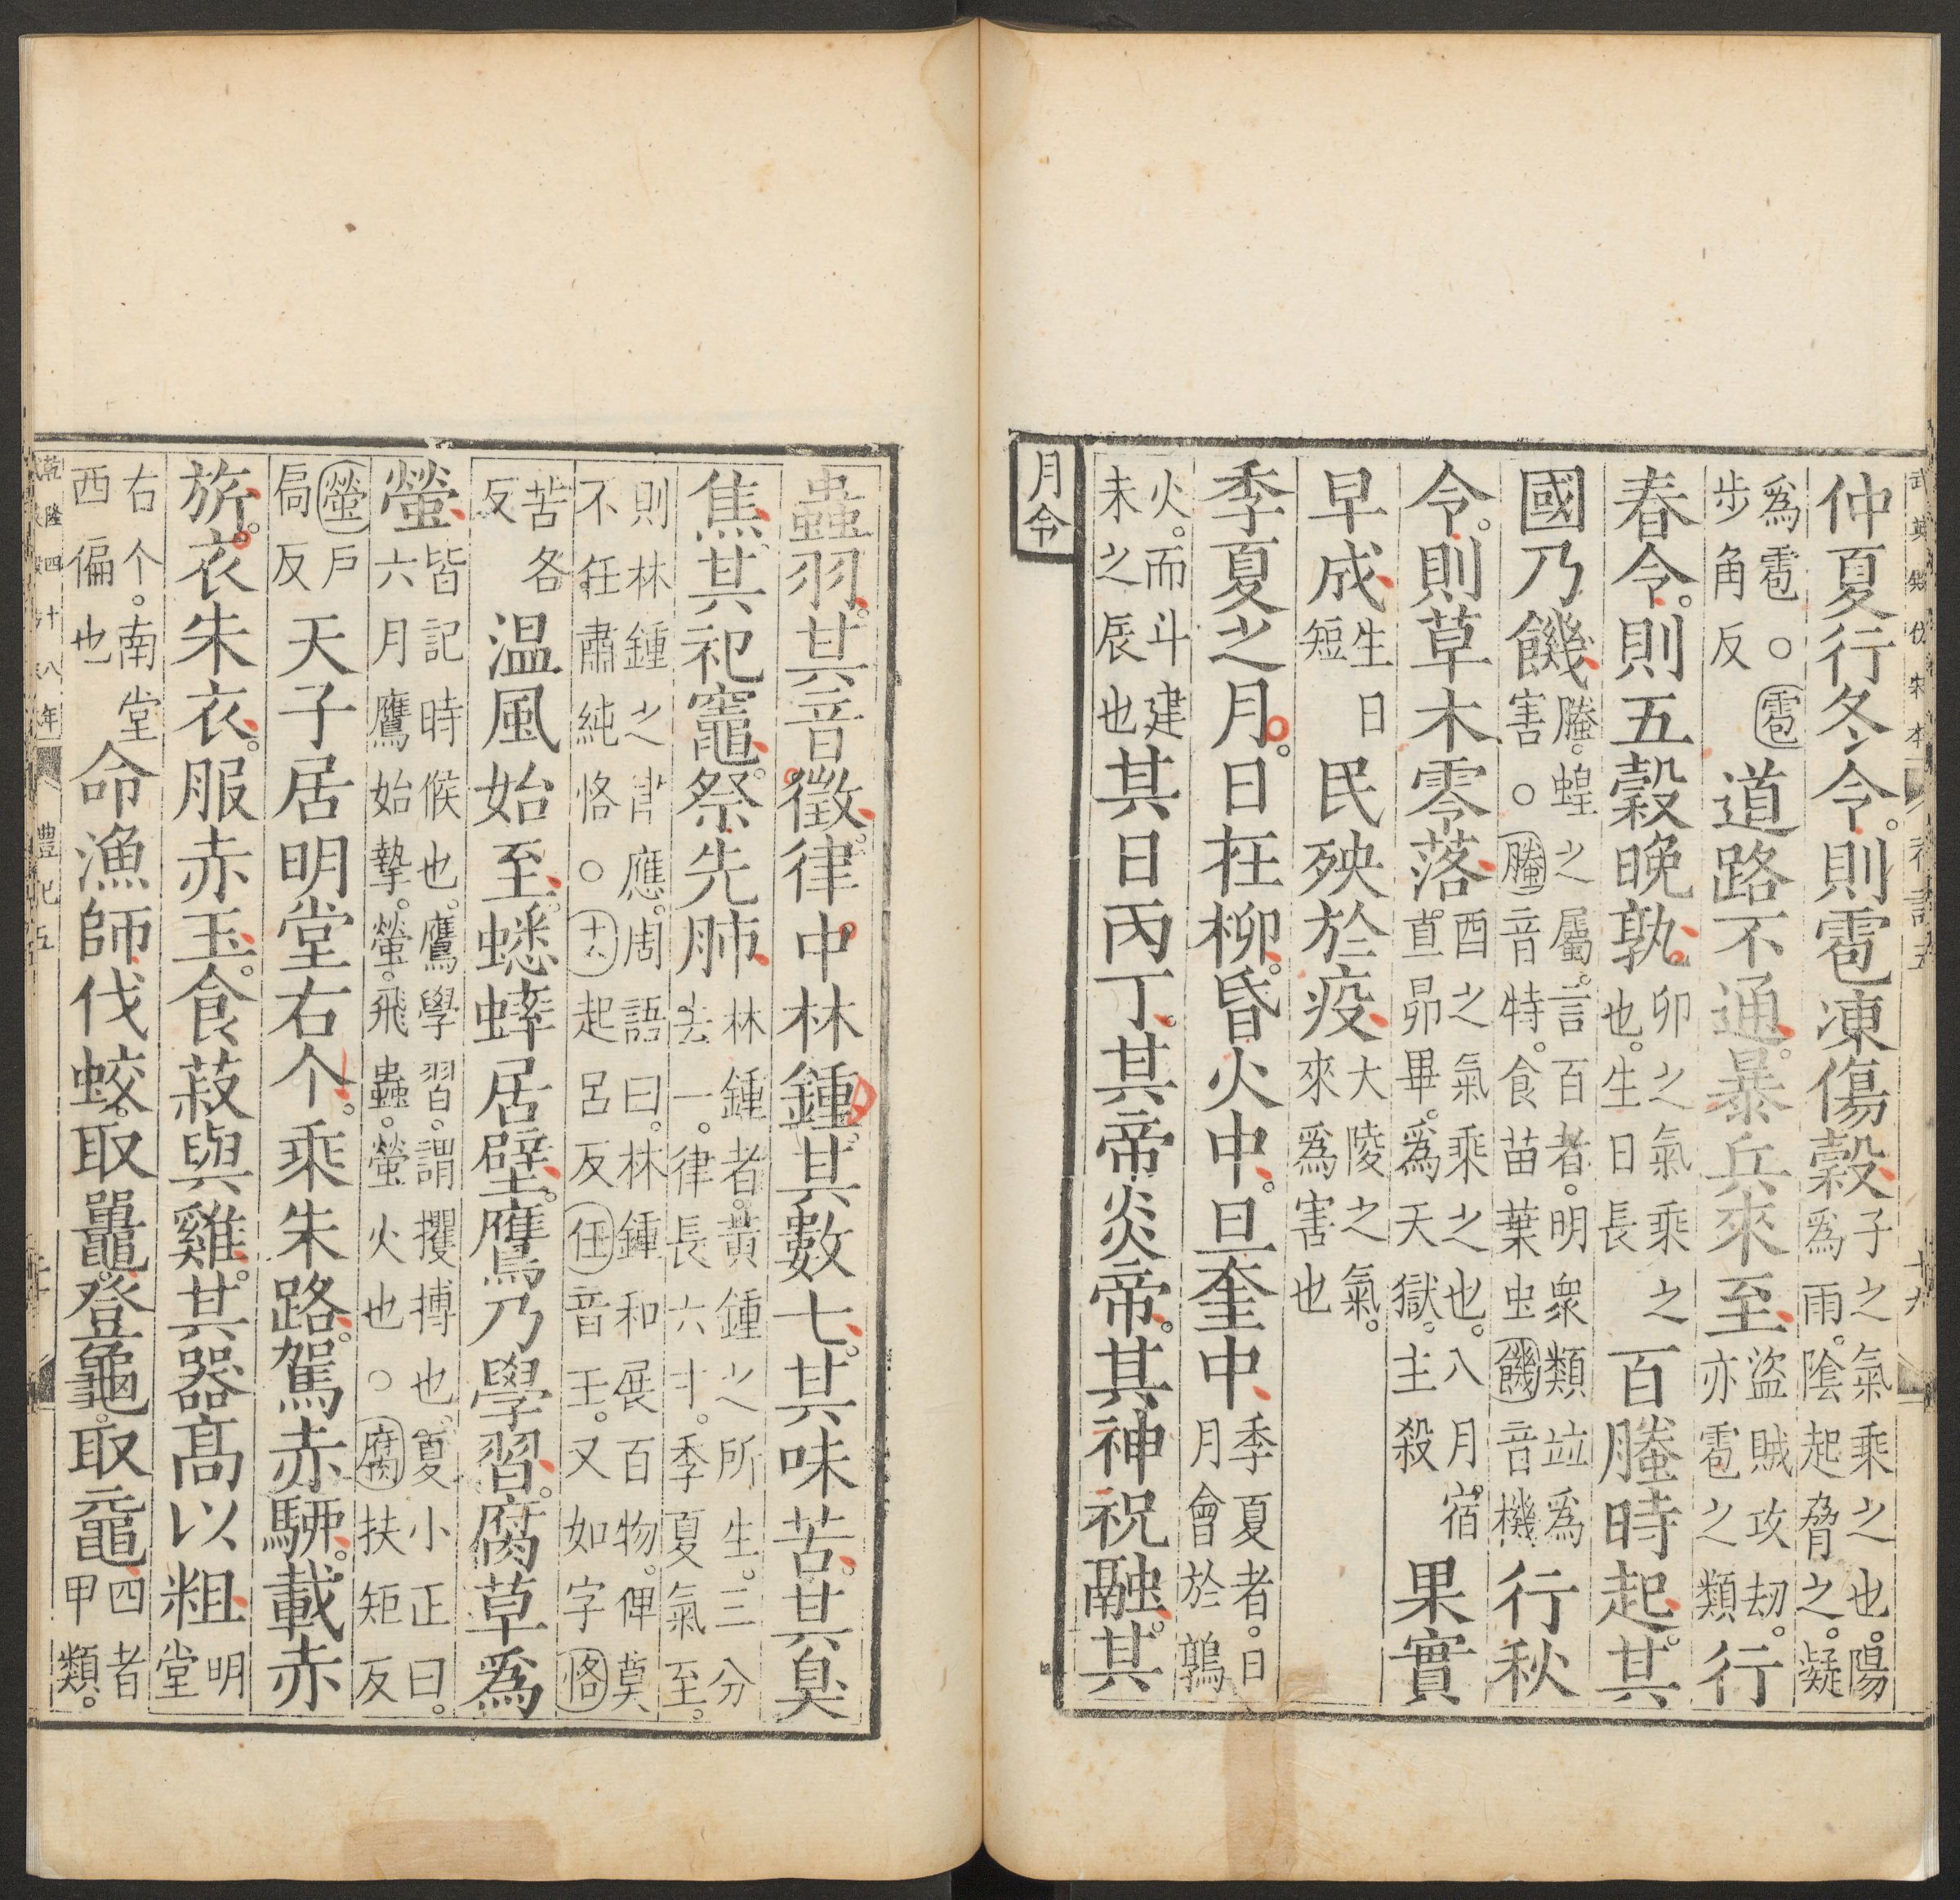 仲夏行冬令。則雹凍傷穀。子之氣乘之也。陽爲雨。陰起脅之。凝
爲雹○雹步角反道路不通。暴兵來至。盜賊攻刧。亦雹之類行
春令。則五穀晚孰。卯之氣乘之也。生日長百螣時起。其
國乃饑。螣。蝗之屬。言百者。明衆類竝爲害○螣音特。食苗葉虫饑音機行秋
令。則草木零落。酉之氣乘之也。八月宿直昴畢。爲天獄。主殺果實
早成。生日短民殃於疫。大陵之氣。來爲害也
季夏之月。日在柳。昏火中。旦奎中。季夏者。日月會於鶉
火。而斗建未之辰也其日丙丁。其帝炎帝。其神祝融。其
月令
蟲羽。其音徵。律中林鍾。其數七。其味苦。其臭
焦。其祀竈。祭先肺。林鍾者。黃鍾之所生。三分去一。律長六寸。季夏氣至。
則林鍾之律應。周語曰。林鍾和展百物。俾莫不任肅純恪○大起呂反任音壬。又如字恪
苦各反溫風始至。蟋蟀居壁。鷹乃學習。腐草爲
螢。皆記時候也。鷹學習。謂攫搏也。夏小正曰。六月鷹始摯。螢。飛蟲。螢火也○腐扶矩反
螢戶扃反天子居明堂右个。乘朱路。駕赤駵。載赤
旂。衣朱衣。服赤玉。食菽與雞。其器高以粗。明堂
右个。南堂西偏也命漁師伐蛟。取鼉。登龜。取黿。四者甲類。
乾隆四十八年
禮記五